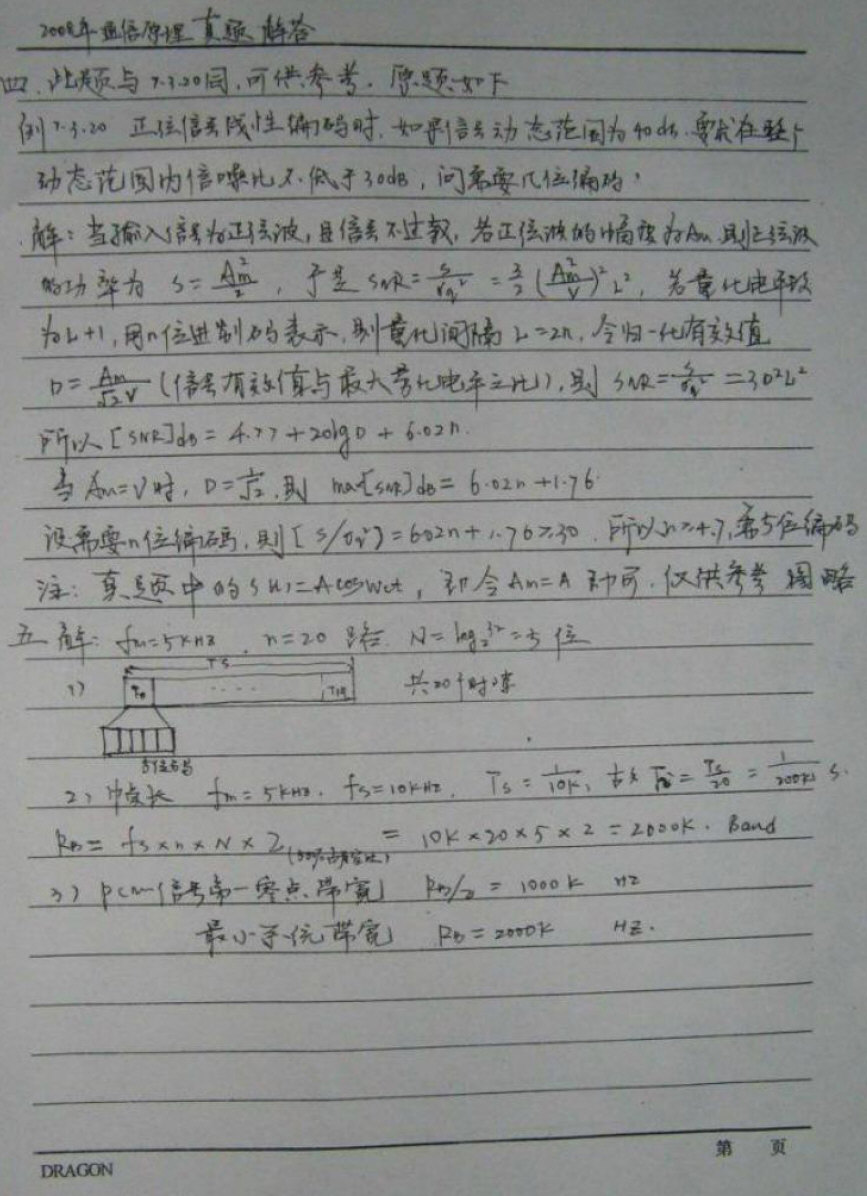 2008年通信原理真题解答
四. 此题与7.3.20同,可供参考. 原题如下
例7.3.20 正弦信号线性编码时,如果信号动态范围为40dB,要求在整个
动态范围内信噪比不低于30dB,问需要几位编码?
解:当输入信号为正弦波,且信号不过载,若正弦波的幅度为Am,则正弦波
的功率为 S=Am²/2, 于是 SNR=S/σq²=3/2(Am²/V)²L², 若量化电平数
为L+1,用n位进制码表示,则量化间隔L=2n,令归一化有效值
D=Am/√2V(信号有效值与最大量化电平之比),则 SNR=S/σq²=3D²L²
所以[SNR]dB=4.77+20lgD+6.02n.
当Am=V时, D=1/√2,则 max[SNR]dB=6.02n+1.76
设需要n位编码,则[S/σq²]=6.02n+1.76≥30. 所以n≥4.7,需5位编码
注:真题中的S(t)=Acosωct, 即令Am=A即可.仅供参考 图略
五 解: fm=5KHz, n=20路 N=log₂³²=5位
Ts
1) ···· 共20个时隙
5位码
2) fm=5KHz. fs=10KHz. Ts=1/10K, 故 =Ts/20=1/200K s.
RB=fs×n×N×2(50%占空比)=10K×20×5×2=2000K. Baud
3) PCM信号第一零点带宽 RB/2=1000K HZ
最小系统带宽 RB=2000K HZ.
第 页
DRAGON